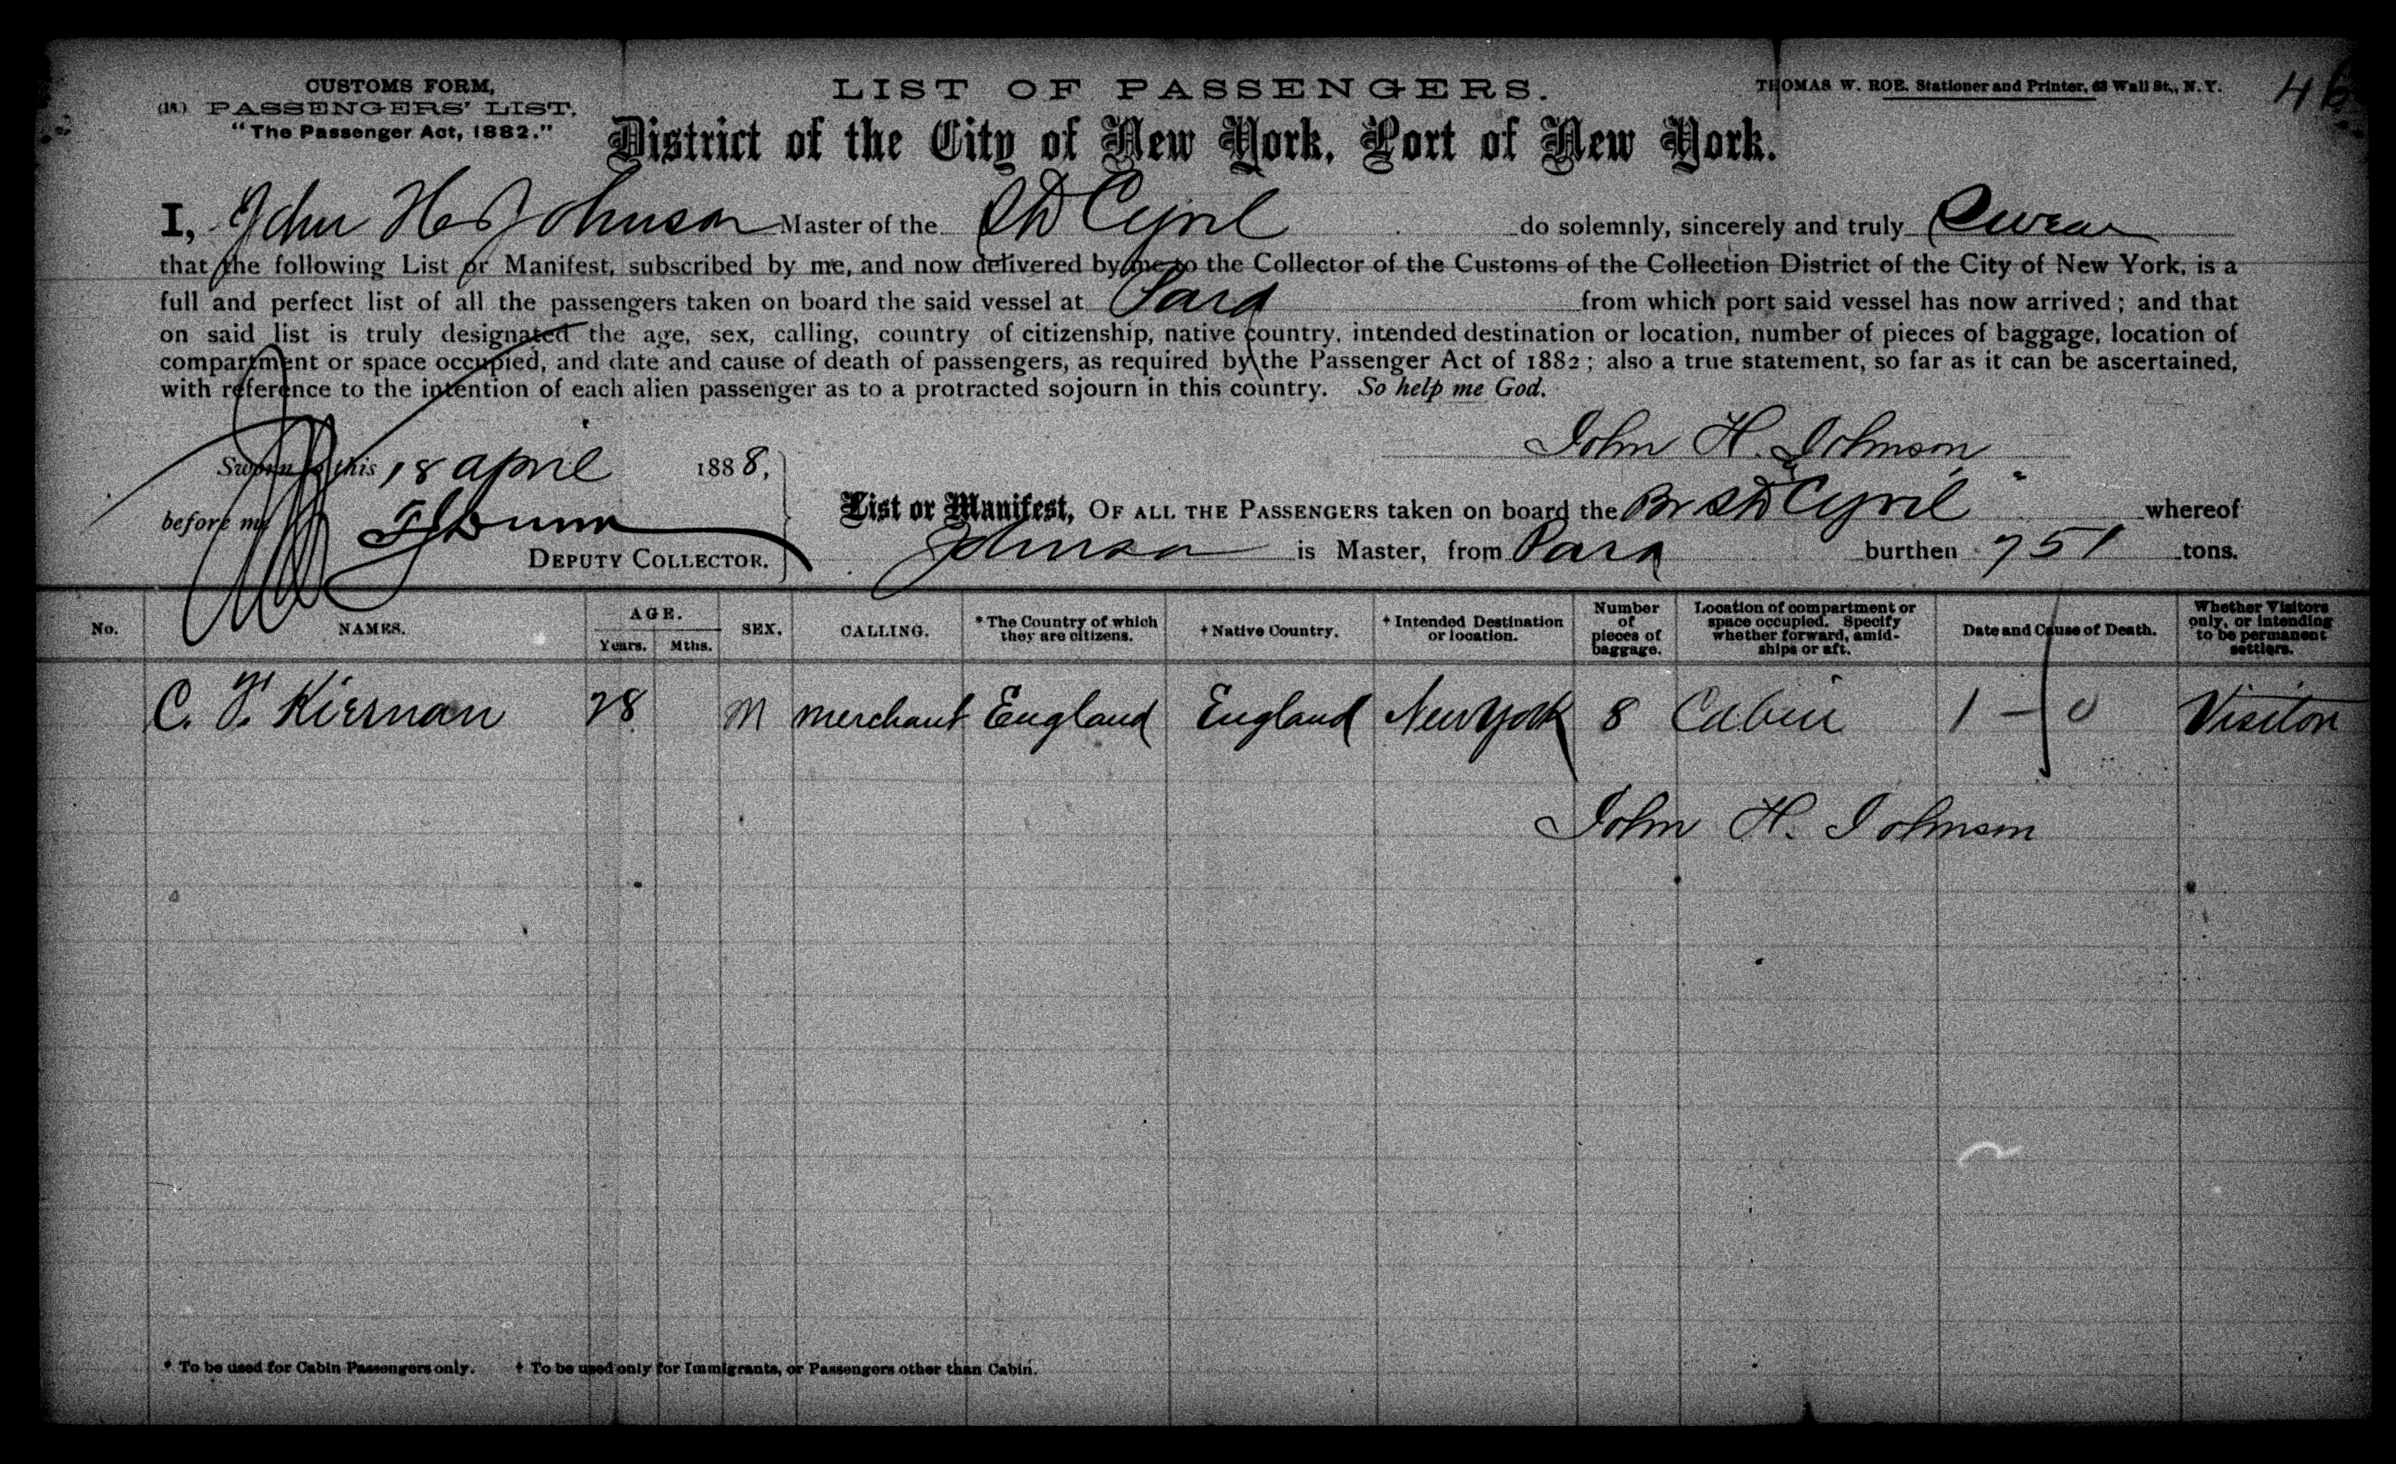 CUSTOMS FORM,
(18.) PASSENGERS' LIST.
"The Passenger Act, 1882."
LIST OF PASSENGERS.
THOMAS W. ROE, Stationer and Printer, 63 Wall St., N. Y.
46
District of the City of New York, Port of New York.
I, John H Johnson Master of the SS Cyril do solemnly, sincerely and truly Swear
that the following List or Manifest, subscribed by me, and now delivered by me to the Collector of the Customs of the Collection District of the City of New York, is a
full and perfect list of all the passengers taken on board the said vessel at Para from which port said vessel has now arrived; and that
on said list is truly designated the age, sex, calling, country of citizenship, native country, intended destination or location, number of pieces of baggage, location of
compartment or space occupied, and date and cause of death of passengers, as required by the Passenger Act of 1882; also a true statement, so far as it can be ascertained,
with reference to the intention of each alien passenger as to a protracted sojourn in this country. So help me God.
John H. Johnson
Sworn to this 18 april 1888,
before me Dunn
DEPUTY COLLECTOR.
List or Manifest, OF ALL THE PASSENGERS taken on board the Br SS Cyril whereof
Johnson is Master, from Para burthen 751 tons.
No. NAMES. AGE. Years. Mths. SEX. CALLING. *The Country of which they are citizens. †Native Country. †Intended Destination or location. Number of pieces of baggage. Location of compartment or space occupied. Specify whether forward, amidships or aft. Date and Cause of Death. Whether Visitors only, or intending to be permanent settlers.
C. F. Kiernan 28 M merchant England England New York 8 Cabin 1 - 0 Visitor
John H. Johnson
* To be used for Cabin Passengers only. † To be used only for Immigrants, or Passengers other than Cabin.